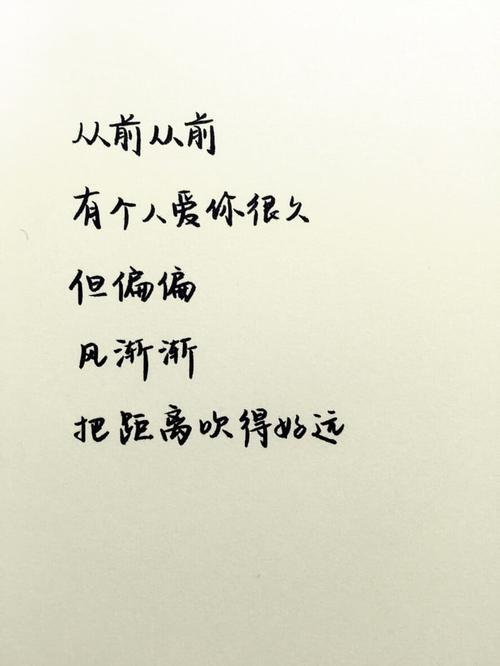 从前从前
有个人爱你很久
但偏偏
风渐渐
把距离吹得好远